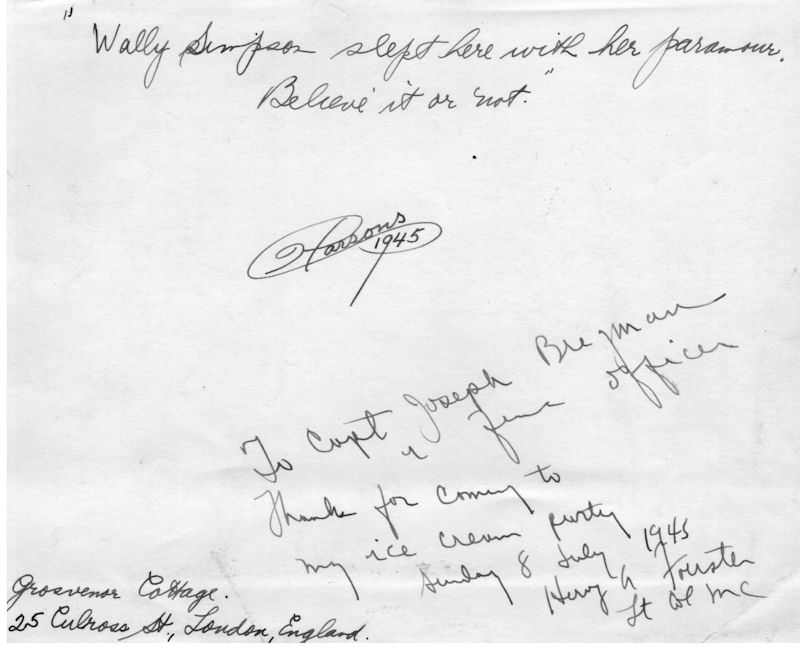 "Wally Simpson slept here with her paramour.
Believe it or not."
Parsons
1945
To Capt Joseph Bregman
a fine officer
Thanks for coming to
my ice cream party
Sunday 8 July 1945
Henry A
Lt Col MC
Grosvenor Cottage.
25 Culross St., London, England.